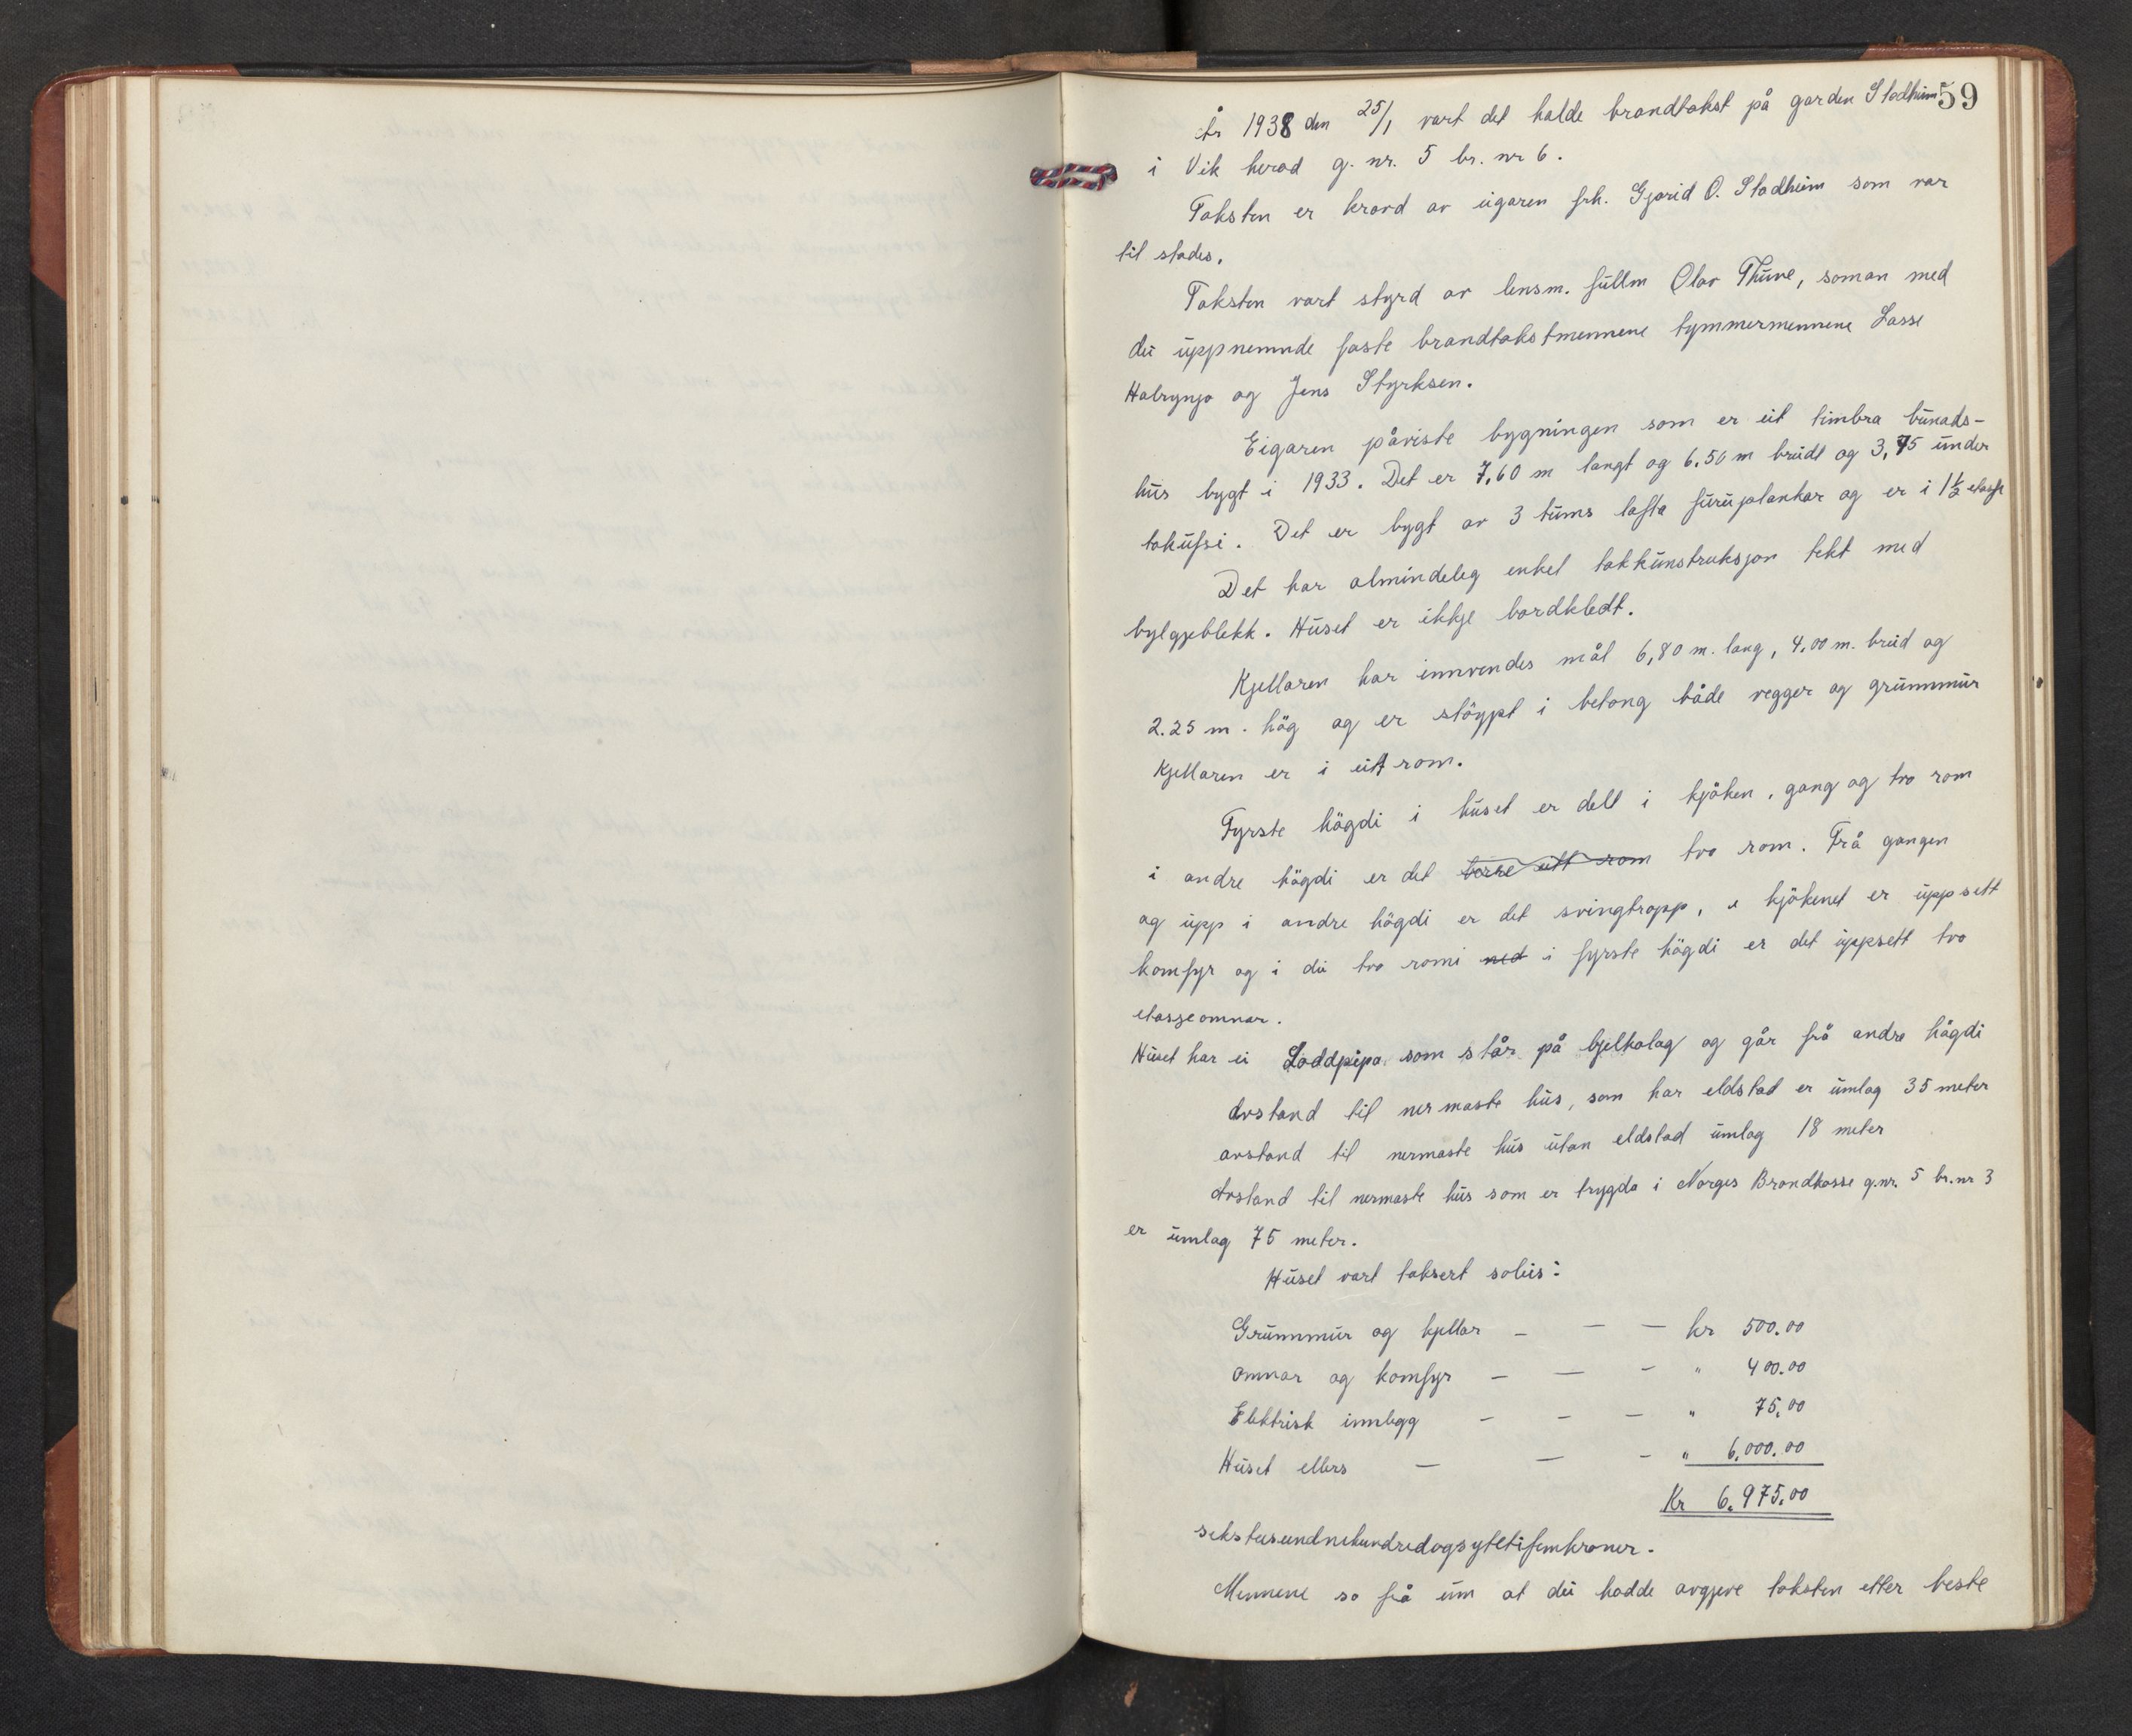 59
År 1938 den 25/1 vart det halde brandtakst på garden Stadheim
i Vik herad g. nr. 5 br. nr 6.
Taksten er kravd av eigaren frk. Gjarid O. Stadheim som var
til stades.
Taksten vart styrd av lensm. fullm Olav Thune, soman med
dei uppnemnde faste brandtakstmennene tymmermennene Lasse
Halrynjo og Jens Styrksen.
Eigaren påviste bygningen som er eit timbra bunads-
hus bygt i 1933. Det er 7,60 m langt og 6.50 m breidt og 3,75 under
takufsi. Det er bygt av 3 tums lafta furuplankar og er i 1½ etasje
Det har almindeleg enkel takkunstruksjon tekt med
bylgjeblekk. Huset er ikkje bordkledt.
Kjellaren har innvendes mål 6,80 m. lang, 4.00 m. breid og
2.25 m. hög og er stöypt i betong både vegger og grunnmur
Kjellaren er i eitt rom.
Fyrste högdi i huset er delt i kjöken, gang og tvo rom
i andre högdi er det berre eitt rom tvo rom. Frå gangen
og upp i andre högdi er det svingtropp, i kjökenet er uppsett
komfyr og i dei tvo romi ned i fyrste högdi er det uppsett tvo
etasjeomnar.
Huset har ei Loddpipa som står på bjelkalag og går frå andre högdi
Avstand til nermaste hus, som har eldstad er umlag 35 meter
avstand til nermaste hus utan eldstad umlag 18 meter
Avstand til nermaste hus som er trygda i Norges Brandkasse g.nr. 5 br.nr 3
er umlag 75 meter.
Huset vart taksert soleis:
Grunnmur og kjellar - — — kr 500.00
omnar og komfyr - — - " 400.00
Elektrisk innlegg - - — " 75,00
Huset ellers — — - " 6,000.00
Kr 6.975,00
sekstusundnihundredogsyttifemkroner.
Mennene sa frå um at dei hadde avgjeve taksten etter beste